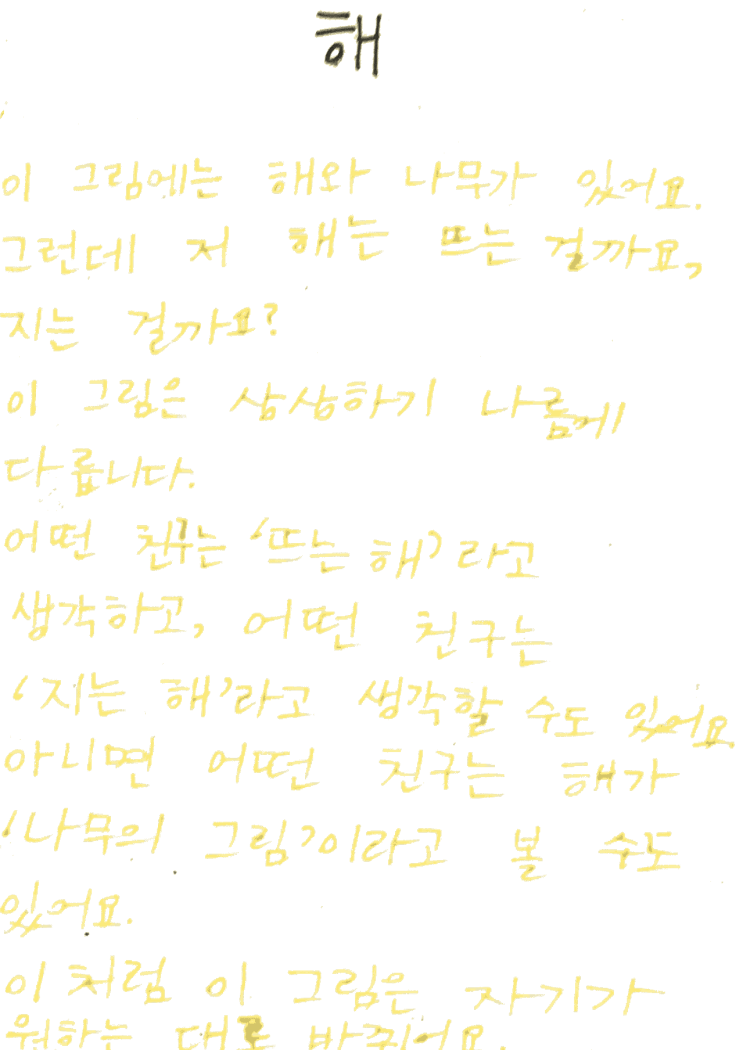 해
이 그림에는 해와 나무가 있어요.
그런데 저 해는 뜨는 걸까요,
지는 걸까요?
이 그림은 상상하기 나름에
다릅니다.
어떤 친구는 '뜨는 해'라고
생각하고, 어떤 친구는
'지는 해'라고 생각할 수도 있어요
아니면 어떤 친구는 해가
'나무의 그림'이라고 볼 수도
있어요.
이처럼 이 그림은 자기가
원하는 대로 바뀌어요.